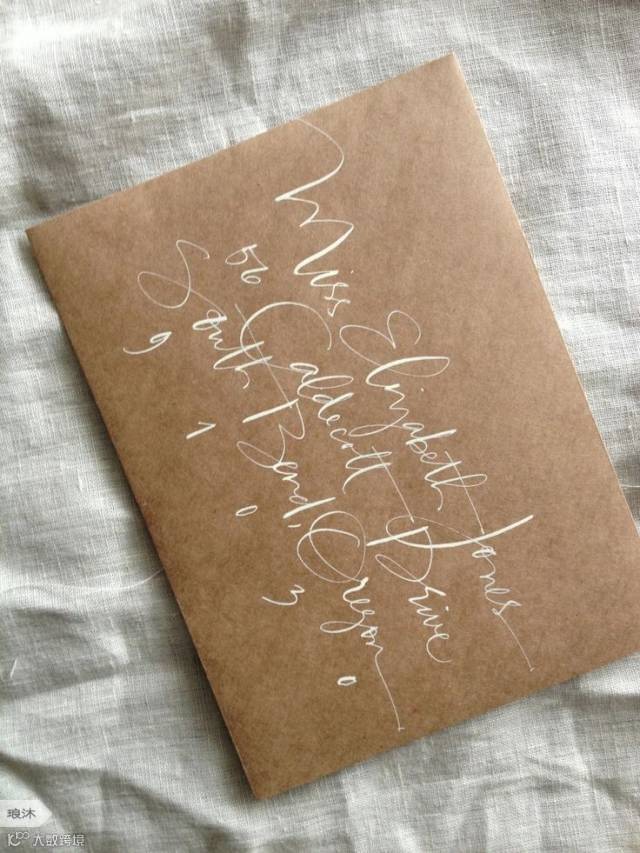 Miss Elizabeth Jones
56 Caldecott Drive
South Bend, Oregon
9 1 0 3 0
琅沐
10100 大数跨境